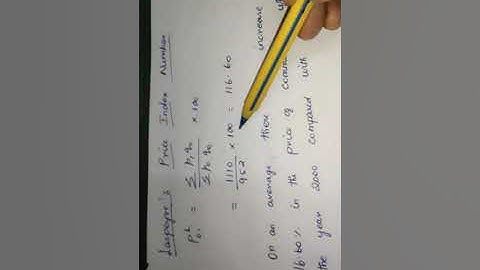 Laspeyre's Price Index Number
P₀₁ᴸ = Σ p₁q₀ / Σ p₀q₀ × 100
= 1110 / 952 × 100 = 116.60
On an average, there increase
16.60% in the price of
the year 2000 compared with